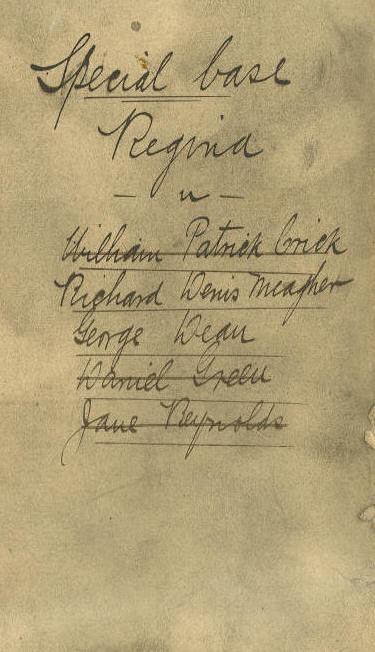 Special Case
Regina
- v -
William Patrick Crick
Richard Denis Meagher
George Dean
Daniel Green
Jane Reynolds